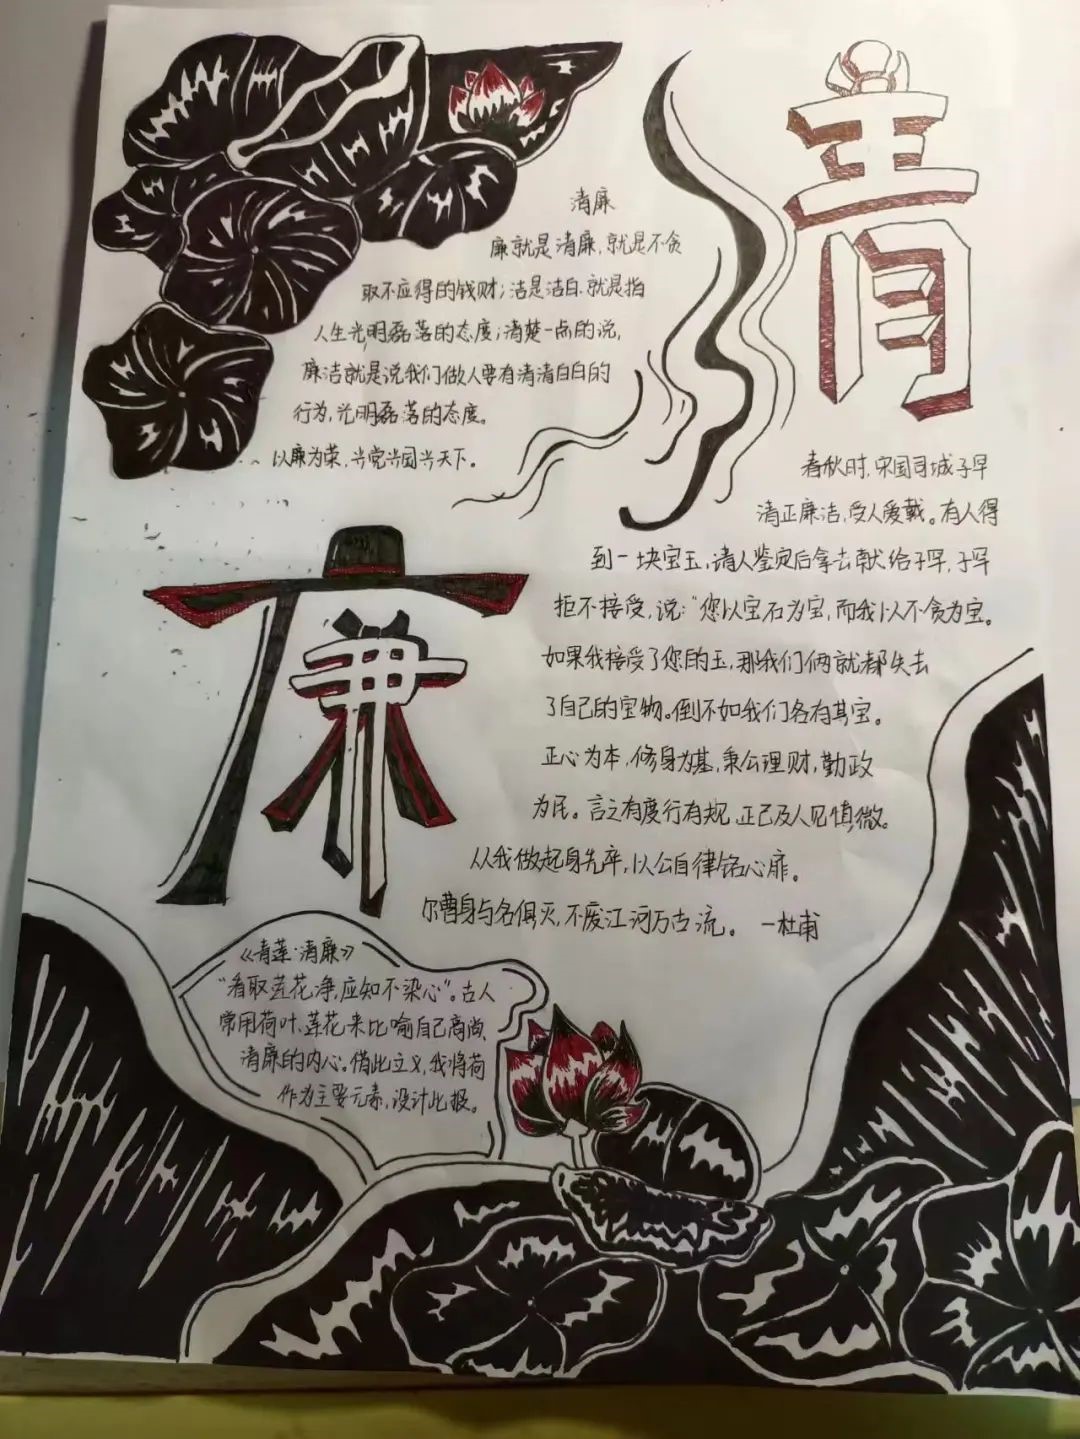 清
清廉
廉就是清廉,就是不贪
取不应得的钱财;洁是洁白.就是指
人生光明磊落的态度;清楚一点的说,
廉洁就是说我们做人要有清清白白的
行为,光明磊落的态度。
以廉为荣,兴党兴国兴天下。
春秋时,宋国司城子罕
清正廉洁,受人爱戴。有人得
到一块宝玉,请人鉴定后拿去献给子罕,子罕
拒不接受,说:"您以宝石为宝,而我以不贪为宝。
如果我接受了您的玉,那我们俩就都失去
了自己的宝物。倒不如我们各有其宝。
正心为本,修身为基,秉公理财,勤政
为民。言之有度行有规,正己及人见慎微。
从我做起身先卒,以公自律铭心扉。
尔曹身与名俱灭,不废江河万古流。 —杜甫
廉
《青莲·清廉》
"看取莲花净,应知不染心"。古人
常用荷叶、莲花来比喻自己高尚、
清廉的内心。借此立义,我将荷
作为主要元素,设计此报。